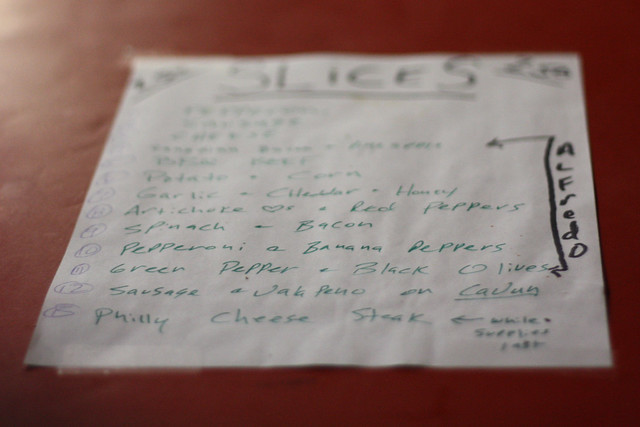 SLICES
PEPPERONI
SAUSAGE
CHEESE
Potato + Corn
Garlic + Cheddar + Honey
Artichoke ♡s + Red Peppers
Spinach + Bacon
10 Pepperoni & Banana Peppers
11 Green Pepper + Black Olives
12 Sausage + Jalapeno on Cajun
Philly Cheese Steak ← while
supplies
last
ALFREDO